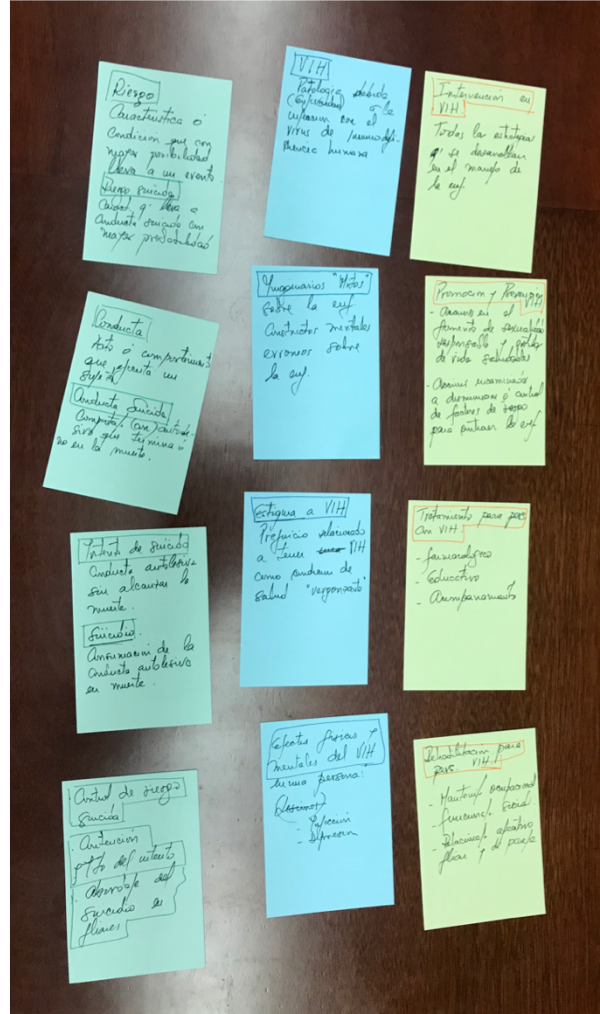 Riesgo
Característica ó
Condición que con
mayor posibilidad
lleva a un evento.
Riesgo suicida
q' lleva a
Conducta suicida con
mayor probabilidad
Conducta
Acto ó comportamiento
que ejecuta un
sujeto.
Conducta Suicida
que termina ó
no en la muerte.
Intento de suicidio
Conducta autolesiva
sin alcanzar la
muerte.
Suicidio.
Consumación de la
conducta autolesiva
en muerte.
Control de riesgo
suicida
- Contención
del intento
- Abordaje del
suicidio en
VIH
Patología debida
a la
infección con el
virus de
humana
Imaginarios "Mitos"
sobre la enf.
Constructos mentales
erroneos sobre
la enf.
Estigma a VIH
Prejuicio relacionado
a tener VIH
como de
salud "vergonzante"
Efectos físicos y
mentales del VIH
en una persona:
- Infección
- Depresión
Intervención en
VIH
Todas la estrategias
q' se desarrollan
en el manejo de
la enf.
Promoción y Prevención
VIH
- Acciones en el
fomento de sexualidad
responsable y estilos
de vida saludables
- Acciones
a disminución ó control
de factores de riesgo
para la enf.
Tratamiento para pac
con VIH
- farmacológico
- Educativo
- Acompañamiento
Rehabilitación para
VIH.
- ocupacional
- funcional social.
- afectivo
y de pareja